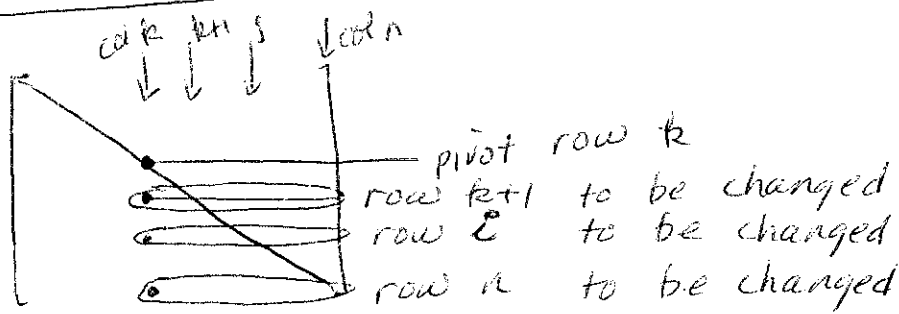 col k k+1 j col n
pivot row k
row k+1 to be changed
row i to be changed
row n to be changed